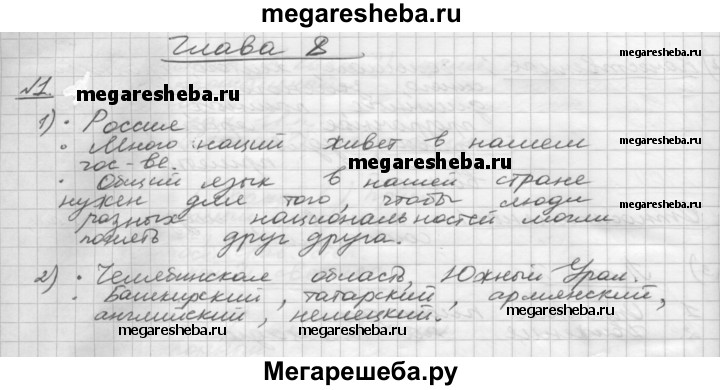 megaresheba.ru
Глава 8
megaresheba.ru
№1.
megaresheba.ru
1) • Россия
• Много наций живет в нашем
гос-ве.
megaresheba.ru
• Общий язык в нашей стране
нужен для того, чтобы люди
разных национальностей могли
понять друг друга.
2) • Челябинская область, Южный Урал.
• Башкирский, татарский, армянский,
английский, немецкий.
megaresheba.ru
megaresheba.ru
Мегарешеба.ру